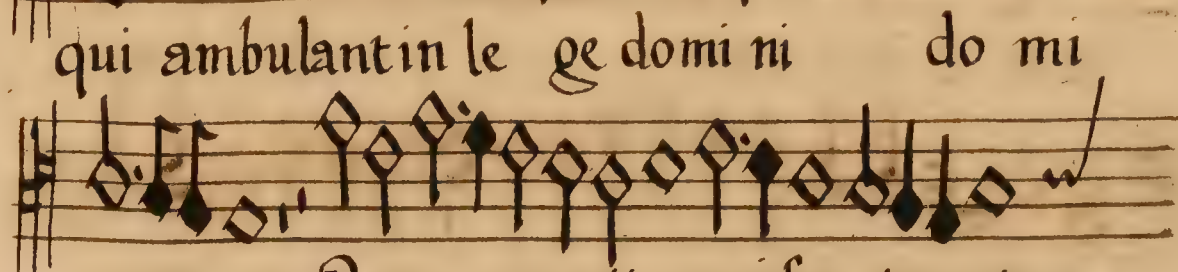 qui ambulant in le ge domi ni do mi